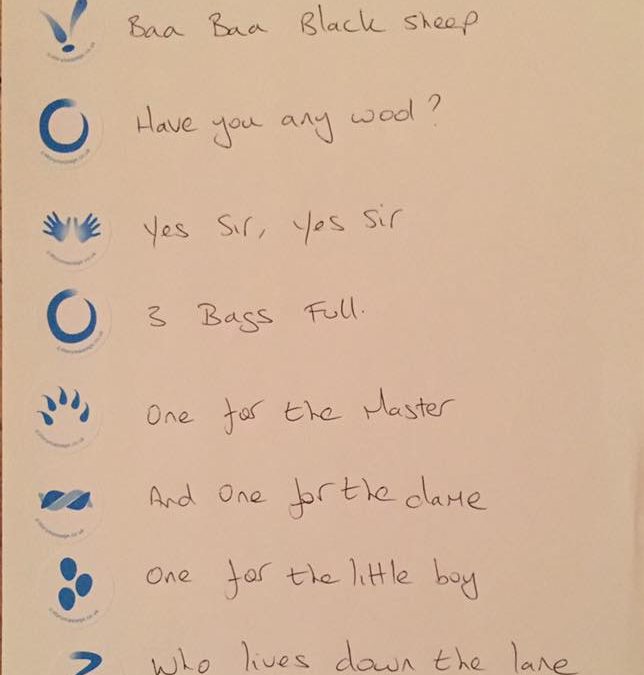 Baa Baa Black Sheep
Have you any wool?
Yes Sir, Yes Sir
3 Bags Full.
One for the Master
And One for the dame
One for the little boy
Who lives down the lane